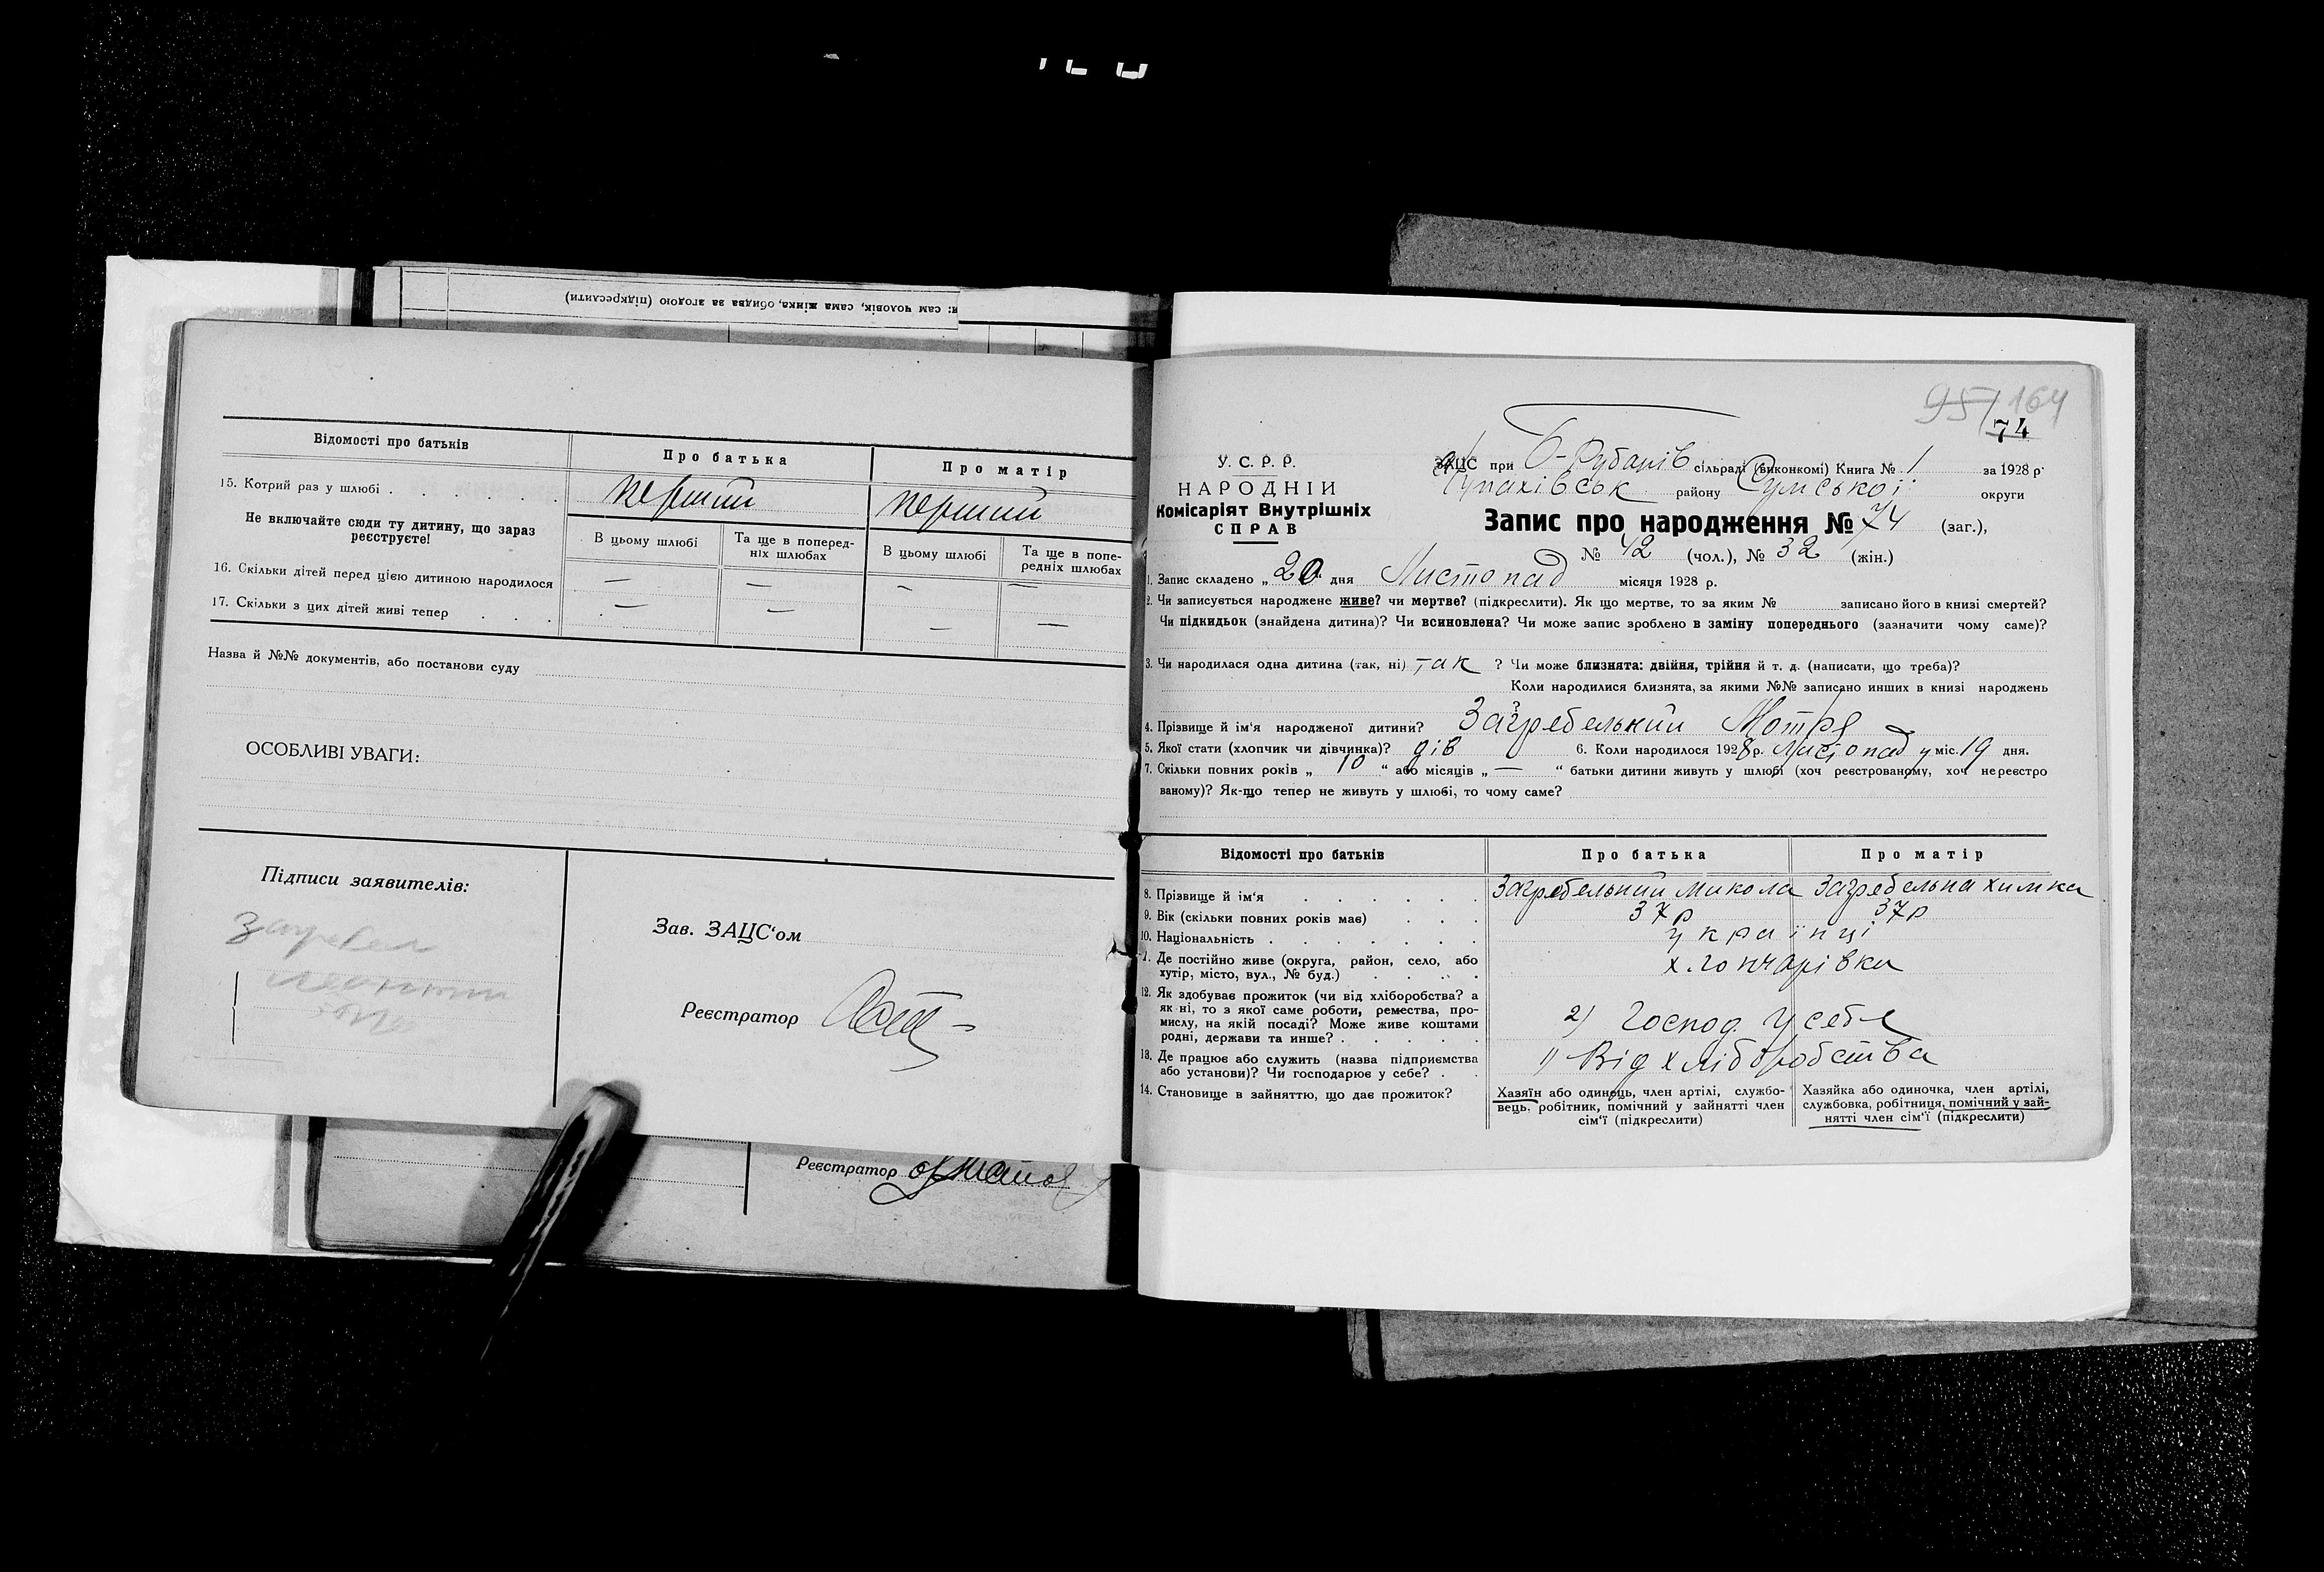 я: сам чоловік, сама жінка, обидва за згодою (підкреслити)
Відомості про батьків
Про батька
Про матір
15. Котрий раз у шлюбі
перший
перший
Не включайте сюди ту дитину, що зараз реєструєте!
В цьому шлюбі
Та ще в поперед-
ніх шлюбах
В цьому шлюбі
Та ще в попе-
редніх шлюбах
16. Скільки дітей перед цією дитиною народилося — — — —
17. Скільки з цих дітей живі тепер — — — —
Назва й №№ документів, або постанови суду
ОСОБЛИВІ УВАГИ:
Підписи заявителів:
Зав. ЗАЦС'ом
Реєстратор
Реєстратор
95/164
74
У. С. Р. Р.
НАРОДНІЙ
Комісаріят Внутрішніх
СПРАВ
ЗАЦС при Б-Рубанів сільраді (виконкомі) Книга № 1 за 1928 р.
району Сумської округи
Запис про народження № 74 (заг.),
№ 42 (чол.), № 32 (жін.)
1. Запис складено „20" дня Листопад місяця 1928 р.
2. Чи записується народжене живе? чи мертве? (підкреслити). Як що мертве, то за яким № записано його в книзі смертей?
Чи підкидьок (знайдена дитина)? Чи всиновлена? Чи може запис зроблено в заміну попереднього (зазначити чому саме)?
3. Чи народилася одна дитина (так, ні) так ? Чи може близнята: двійня, трійня й т. д. (написати, що треба)?
Коли народилися близнята, за якими №№ записано инших в книзі народжень
4. Прізвище й ім'я народженої дитини? Загребельний Мотря
5. Якої стати (хлопчик чи дівчинка)? дів 6. Коли народилося 1928 р. Листопад у міс. 19 дня.
7. Скільки повних років „ 10 " або місяців „ — " батьки дитини живуть у шлюбі (хоч реєстрованому, хоч нереєстро
ваному)? Як-що тепер не живуть у шлюбі, то чому саме?
Відомості про батьків
Про батька
Про матір
8. Прізвище й ім'я
Загребельний Микола
Загребельна Химка
9. Вік (скільки повних років має)
37 р
37 р
10. Національність
українці
11. Де постійно живе (округа, район, село, або
хутір, місто, вул., № буд.)
х. Гончарівка
12. Як здобуває прожиток (чи від хліборобства? а
як ні, то з якої саме роботи, ремества, про-
мислу, на якій посаді? Може живе коштами
родні, держави та инше?
2) Господ. у себе
13. Де працює або служить (назва підприємства
або установи)? Чи господарює у себе?
1) Від хліборобства
14. Становище в зайняттю, що дає прожиток?
Хазяїн або одинець, член артілі, службо-
вець, робітник, помічний у зайнятті член
сім'ї (підкреслити)
Хазяйка або одиночка, член артілі,
службовка, робітниця, помічний у зай-
нятті член сім'ї (підкреслити)